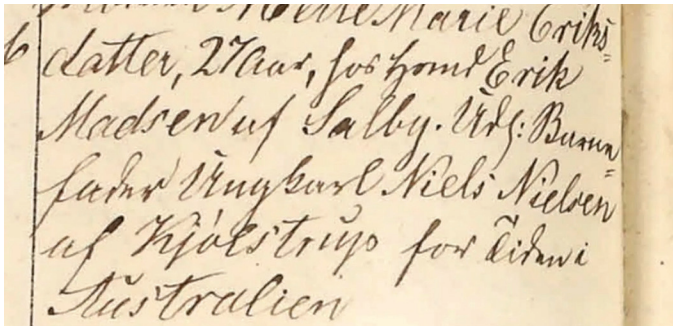 Mette Marie Eriks=
datter, 27 Aar, hos Hmd Erik
Madsen af Salby. Udl: Barne=
fader Ungkarl Niels Nielsen
af Kjölstrup for Tiden i
Australien